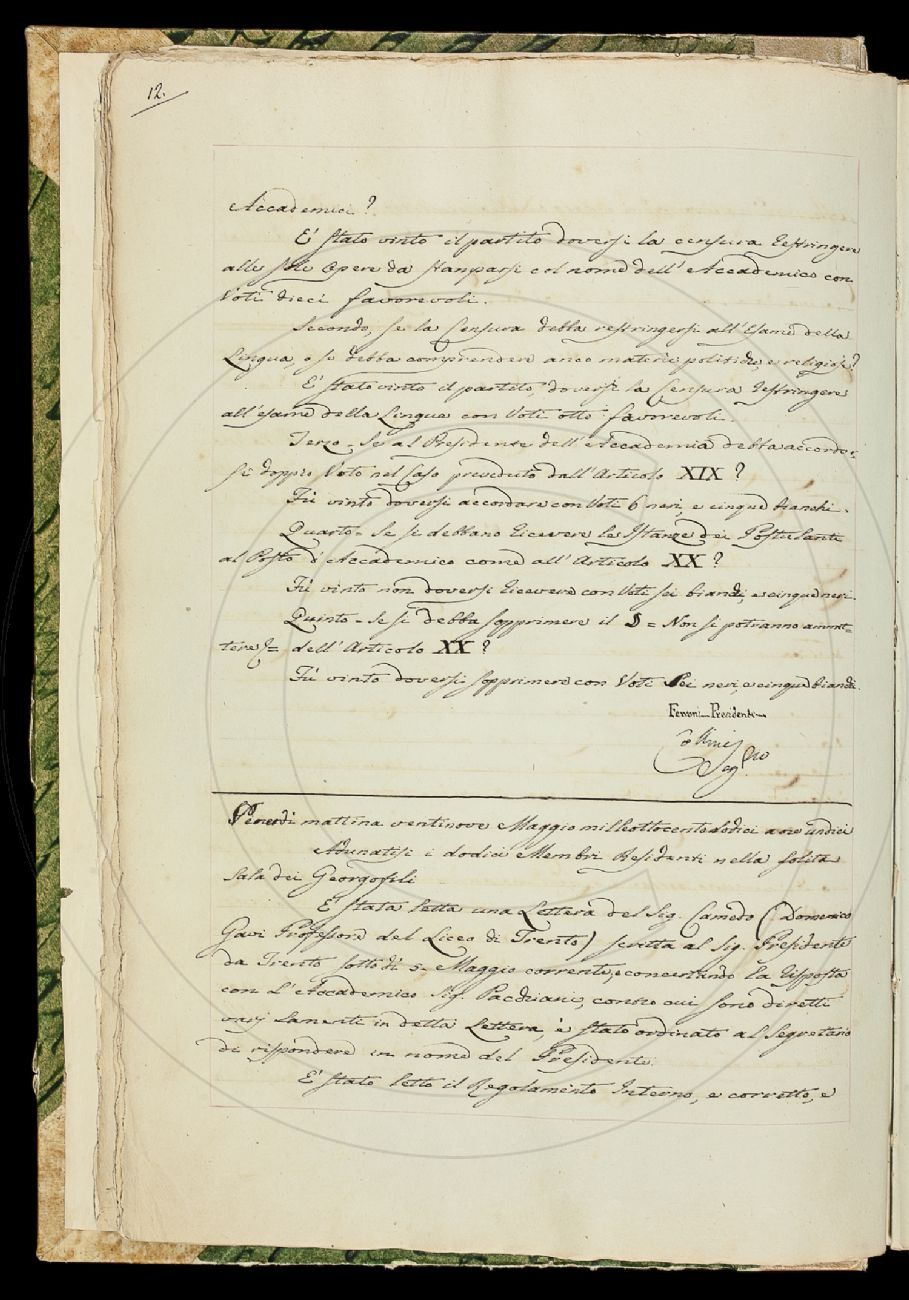 12.
Accademici?
E' stato vinto il partito doversi la censura restringere
alle sole Opere da stamparsi col nome dell'Accademico con
Voti dieci favorevoli.
Secondo, se la Censura debba restringersi all'Esame della
Lingua, o se debba comprendere anco materie politiche, e religiose?
E' stato vinto il partito, doversi la Censura restringere
all'esame della Lingua con Voti otto favorevoli.
Terzo - Se al Presidente dell'Accademia debba accordar-
si doppio Voto nel Caso preveduto dall'Articolo XIX?
Fù vinto doversi accordare con Voti 6 neri, e cinque bianchi.
Quarto - Se si debbano ricevere le Istanze dei Postulanti
al Posto d'Accademico come all'Articolo XX?
Fù vinto non doversi ricevere con Voti sei bianchi, e cinque neri.
Quinto - Se si debba sopprimere il § = Non si potranno ammet=
tere &= dell'Articolo XX?
Fù vinto doversi sopprimere con Voti Sei neri, e cinque bianchi.
Ferroni Presidente
Collini
Seg.rio
Venerdì mattina ventinove Maggio milleottocentododici a ore undici
Adunatisi i dodici Membri Residenti nella solita
Sala dei Georgofili
E' stata letta una Lettera del Sig. (Domenico
Gavi Professore del Liceo di Trento) scritta al Sig. Presidente
da Trento sotto dì 5. Maggio corrente, e concernendo la risposta
con L'Accademico Sig. Pacchiani, contro cui sono diretti
varj lamenti in detta Lettera, è stato ordinato al Segretario
di rispondere in nome del Presidente.
E' stato letto il Regolamento Interno, e corretto, e